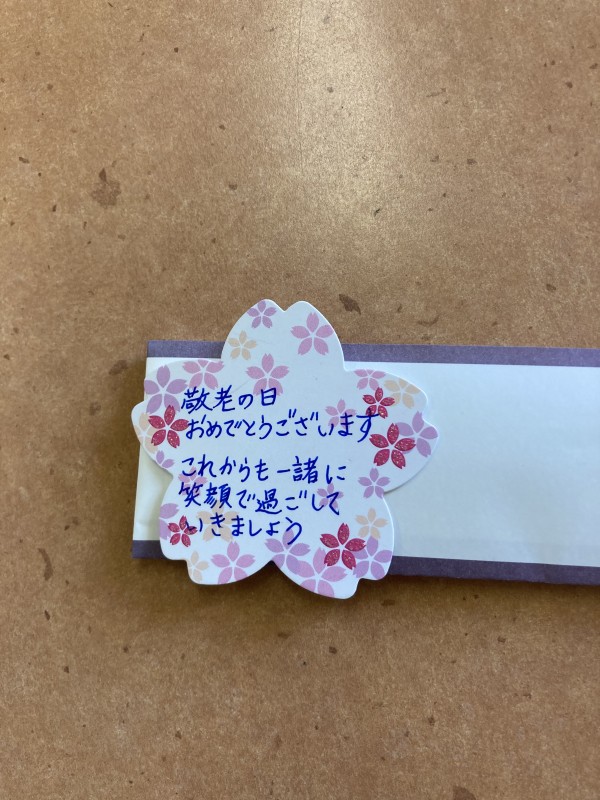 敬老の日
おめでとうございます
これからも一諸に
笑顔で過ごして
いきましょう